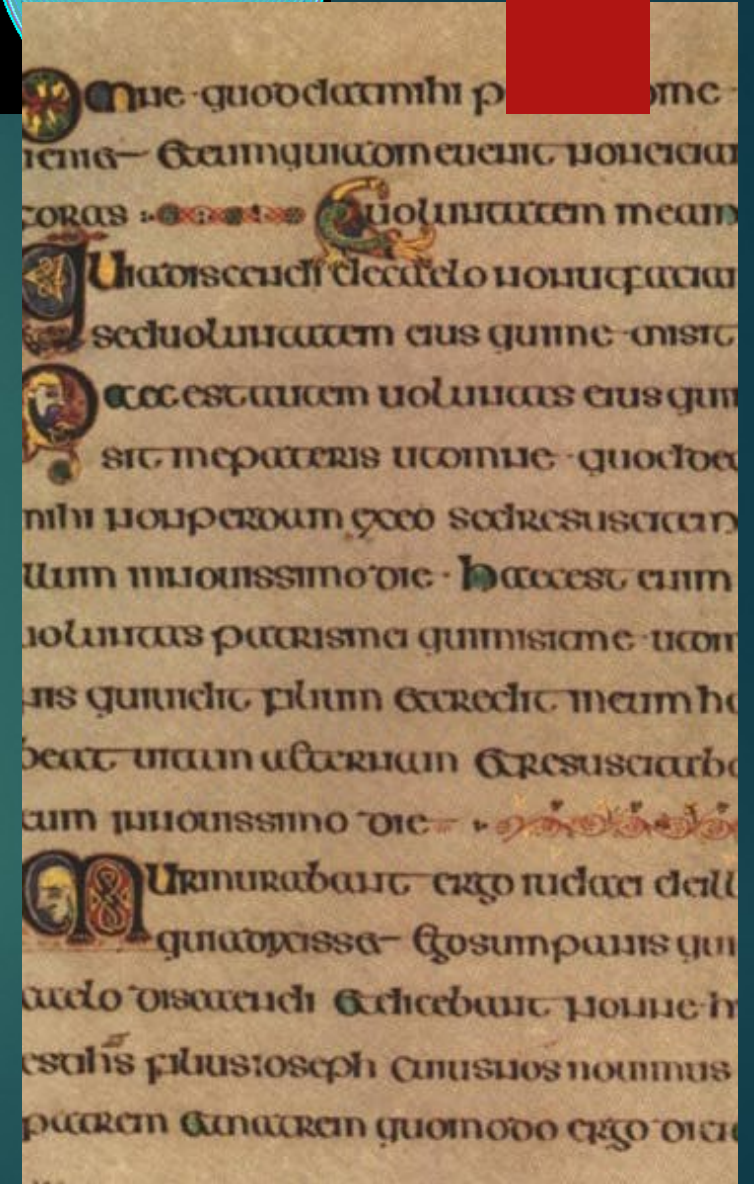 Omne · quod dat mihi p me ·
ueniet Et eum qui ad me uenit non eiciam
foras Quoluntatem meam
Quia discendi de caelo non ut faciam
sed uoluntatem eius qui me · misit
Haec est autem uoluntas eius qui
sit me pateris ut omne · quod ded
mihi non perdam ex eo sed resuscitem
illum in nouissimo die · haec est enim
uoluntas patris mei qui misit me · ut om
nis qui uidit filium et credit in eum ha
beat uitam aeternam Et resuscitabo
eum in nouissimo die
Murmurabant ergo iudaei de ill
quia dixisset Ego sum panis qui
caelo discendi Et dicebant nonne · h
est ihs filius ioseph cuius nos nouimus
patrem et matrem quomodo ergo dici